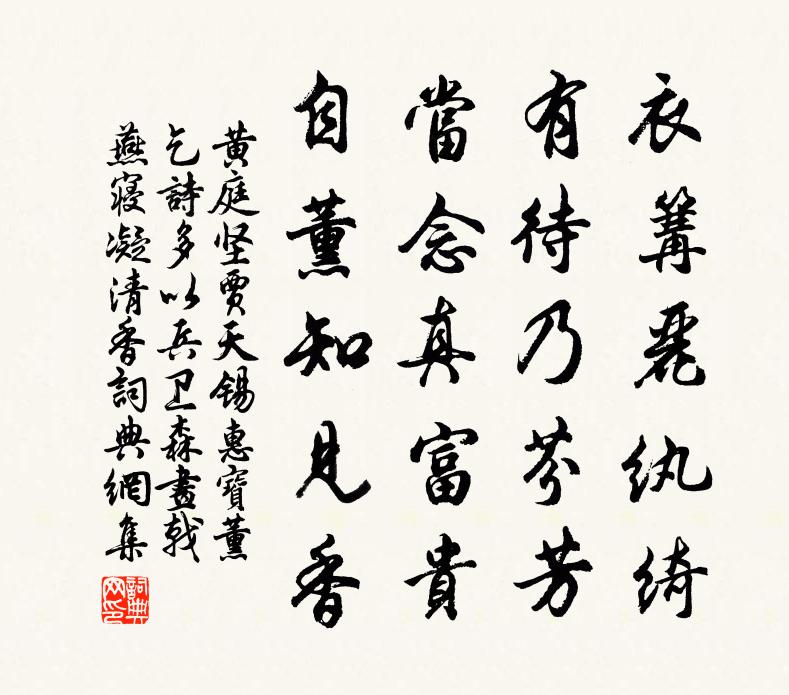 衣篝麗紈綺
有待乃芬芳
當念真富貴
自薰知見香
黄庭坚賈天錫惠寶薰
乞詩多以兵卫森畫戟
燕寢凝清香詞典網集
詞典网印